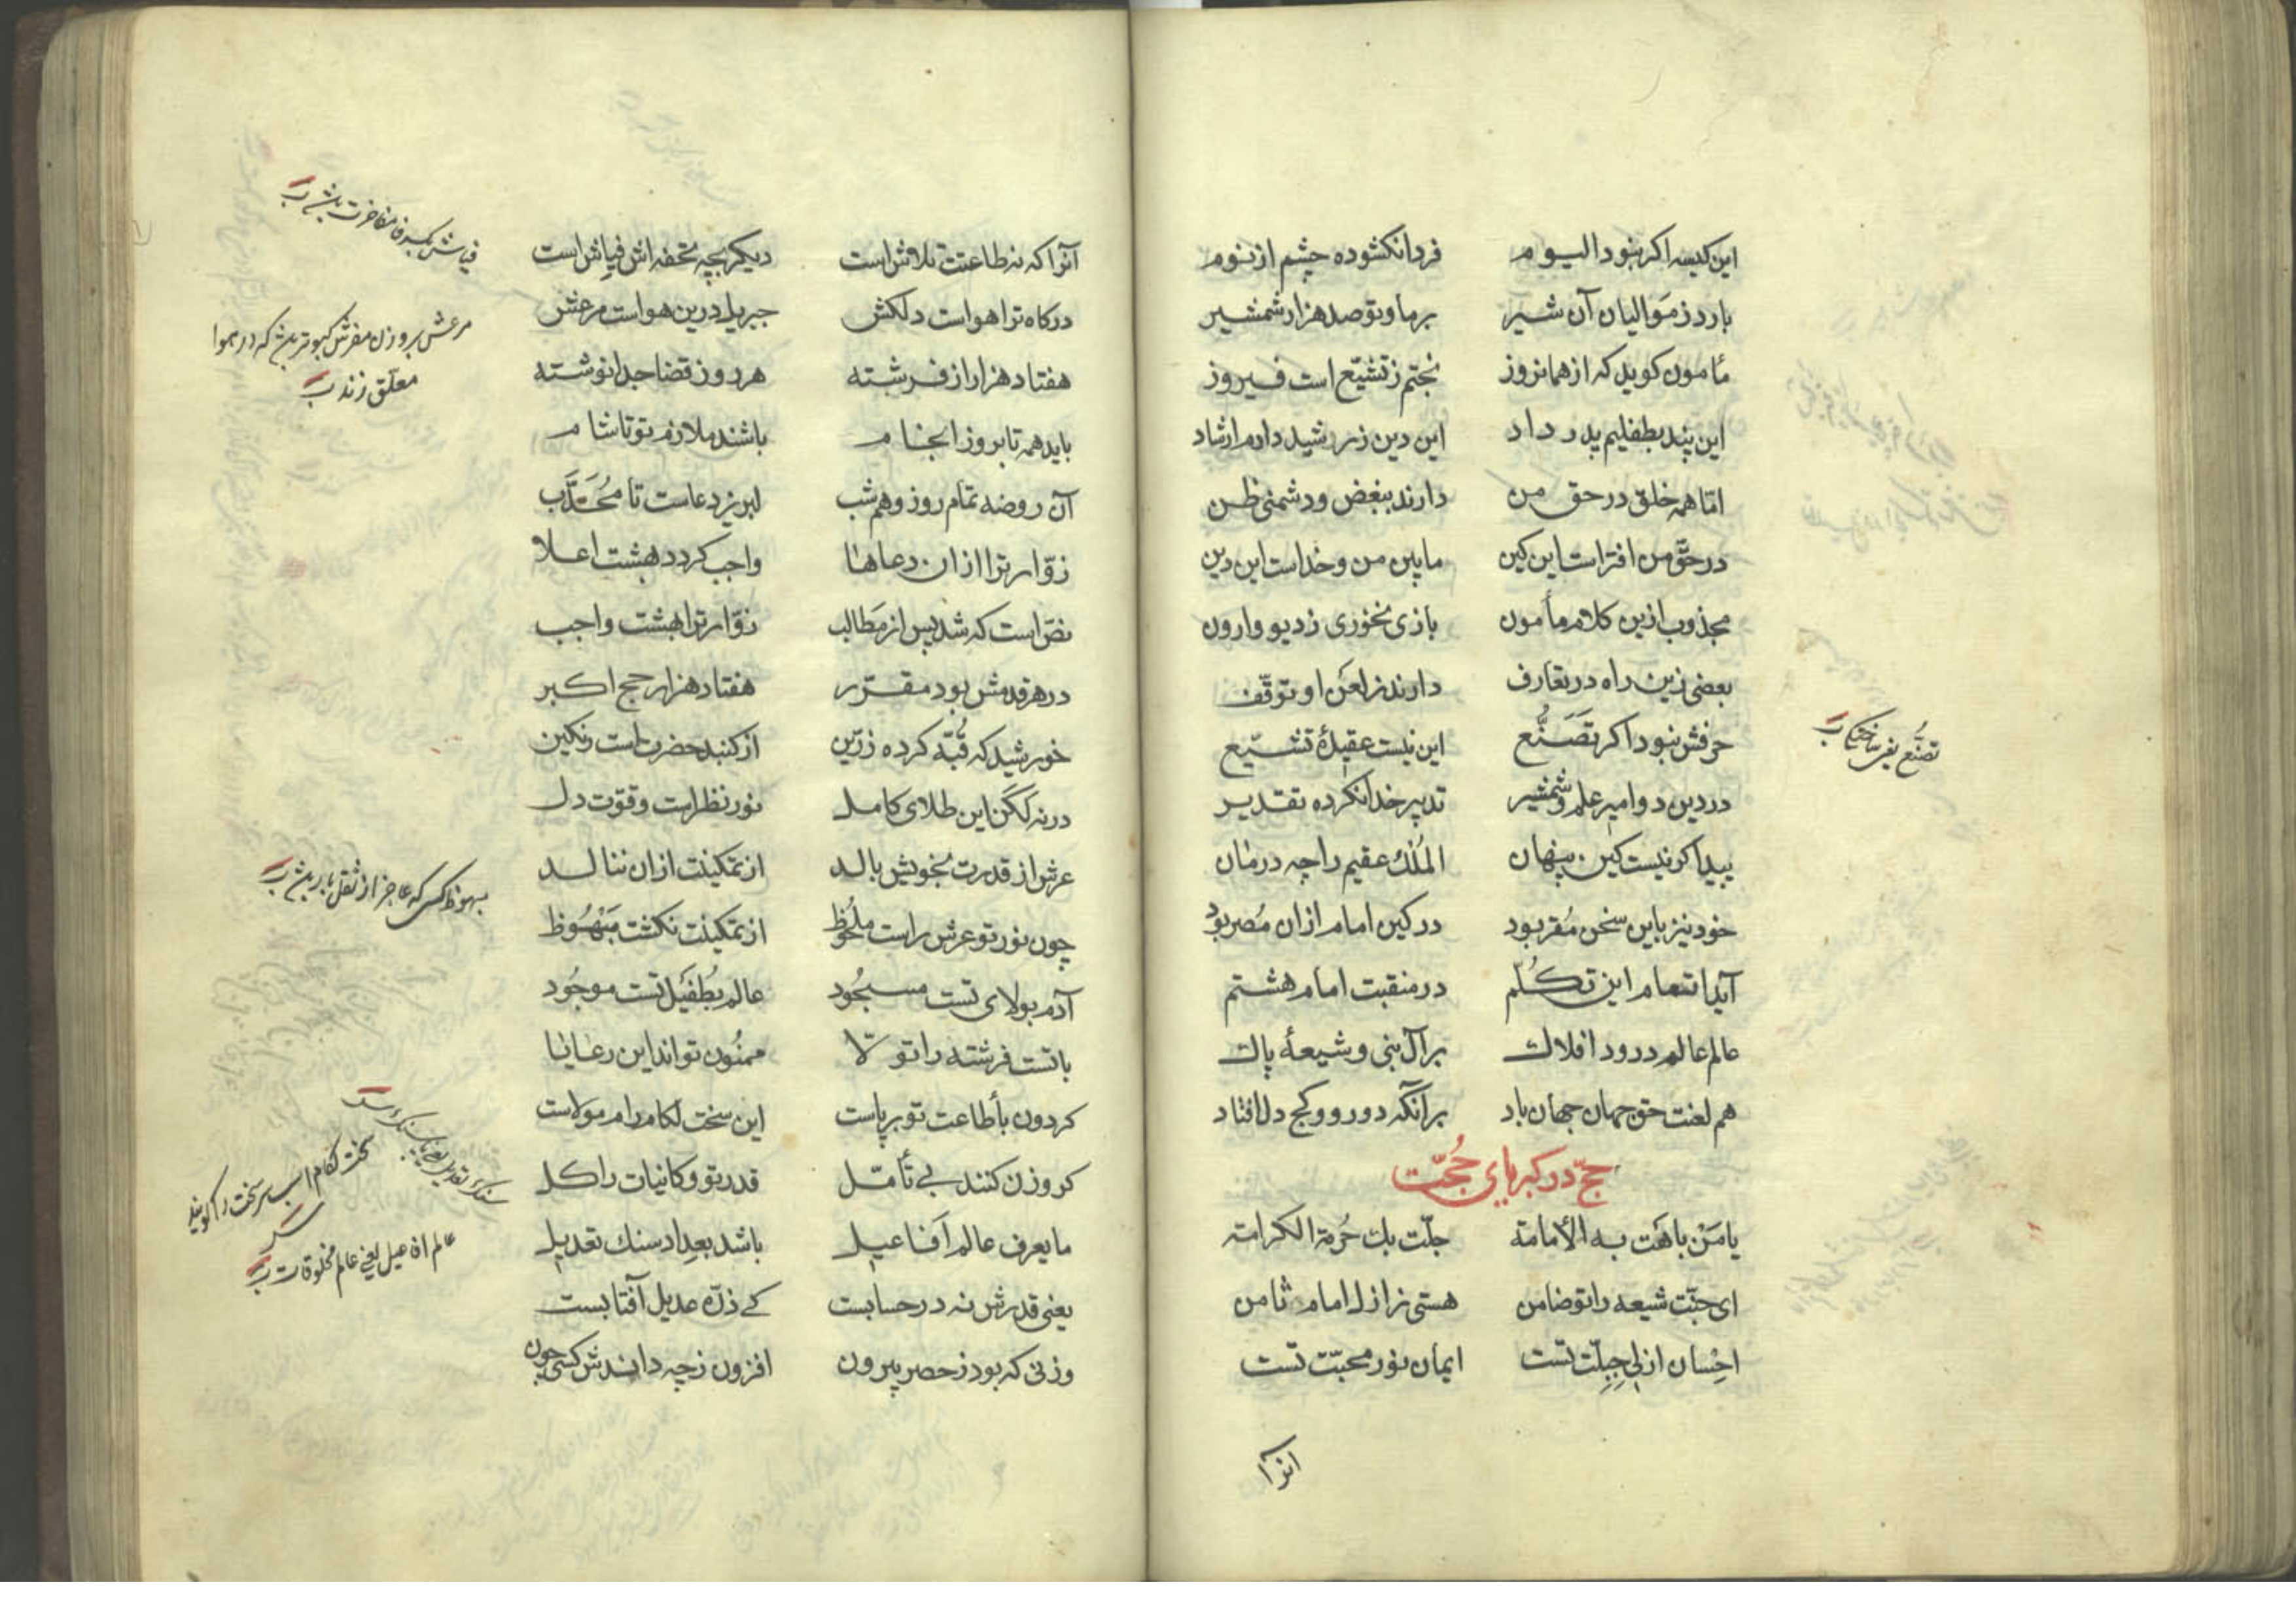 این کیسه اکر بنود الیوم فردا نکشوده چشم از نوم
بارد ز موالیان آن شیر بر ما و تو صد هزار شمشیر
مأمون کوید که از همانروز بختم ز تشیّع است فیروز
این پند بطفلیم پدر داد این دین ز رشید دارم ارشاد
امّا همه خلق در حق من دارند ببغض و دشمنی ظن
در حقّ من افتراست این کین مابین من و خداست این دین
مجذوب ازین کلام مأمون بازی نخوری ز دیو وارون
بعضی زین راه در تعارف دارند ز لعن او توقّف
حرفش بنود اکر تَصَنُّع این نیست عقیدهٔ تشیّع
در دین دو امیر علم و شمشیر تدبیر خدا نکرده تقدیر
پیدا کر نیست کین پنهان الملک عقیم را چه درمان
خود نیز باین سخن مُقر بود در کین امام ازان مُصر بود
آیا تنعام این تکلّم در منقبت امام هشتم
عالم عالم درود افلاک بر آل نبی و شیعهٔ پاک
هم لعنت حق جهان جهان باد بر آنکه دو رو و کج دل افتاد
حجّ در کبریای حُجّت
یا مَنْ باهَت به الأمامة جلّت بک حُرمة الکرامة
ای جنّت شیعه را تو ضامن هستی ز ازل امام ثامن
احْسان ازلی جِبِلّت تست ایمان نور محبّت تست
آنرا
تصنُّع یعنی ساختکی
آنرا که نه طاعتت تلاش است دیکر بچه تحفه اش فیاش است
درکاه ترا هواست دلکش جبریل درین هواست مرعش
هفتاد هزار از فرشته هر روز قضا جدا نوشته
باید همه تا بروز انجام باشند ملازم تو تا شام
آن روضه تمام روز و هم شب لبریز دعاست تا مُحَدَّب
زوّار ترا ازان دعاها واجب کردد بهشت اعلا
نصّ است که شد پس از مَطالب زوّار ترا بهشت واجب
در هر قدمش بود مقرّر هفتاد هزار حج اکبر
خورشید که قُبّه کرده زرّین از کنبد حضرت است رنکین
در نه لکَن این طلای کامل نور نظر است و قوّت دل
عرش از قدرت بخویش بالد از تمکینت ازان ننالد
چون نور تو عرش راست ملحُوظ از تمکینت نکشت مَبْهُوظ
آدم بولای تست مسجُود عالم بطُفیَل تست موجُود
با تست فرشته را تولّا ممنُون تواند این رعایا
کردون بأطاعت تو بر پاست این سخت لکام رام مولاست
کر وزن کنند بی تأمّل قدر تو و کاینات را کل
ما یعرف عالم اَفاعیل باشد بعداد سنک تعدیل
یعنی قدرش نه در حسابست کے ذرّه عدیل آفتابست
وزنی که بود ز حصر بیرون افزون ز چه داندش کسی چون
مرعش بر وزن مفرش کبوتری که در هوا
معلّق زند
مبهوظ کسی که عاجز از ثقل بار باشد
سخت لکام اسب سرسخت را کویند
عالم افاعیل یعنی عالم مخلوقات